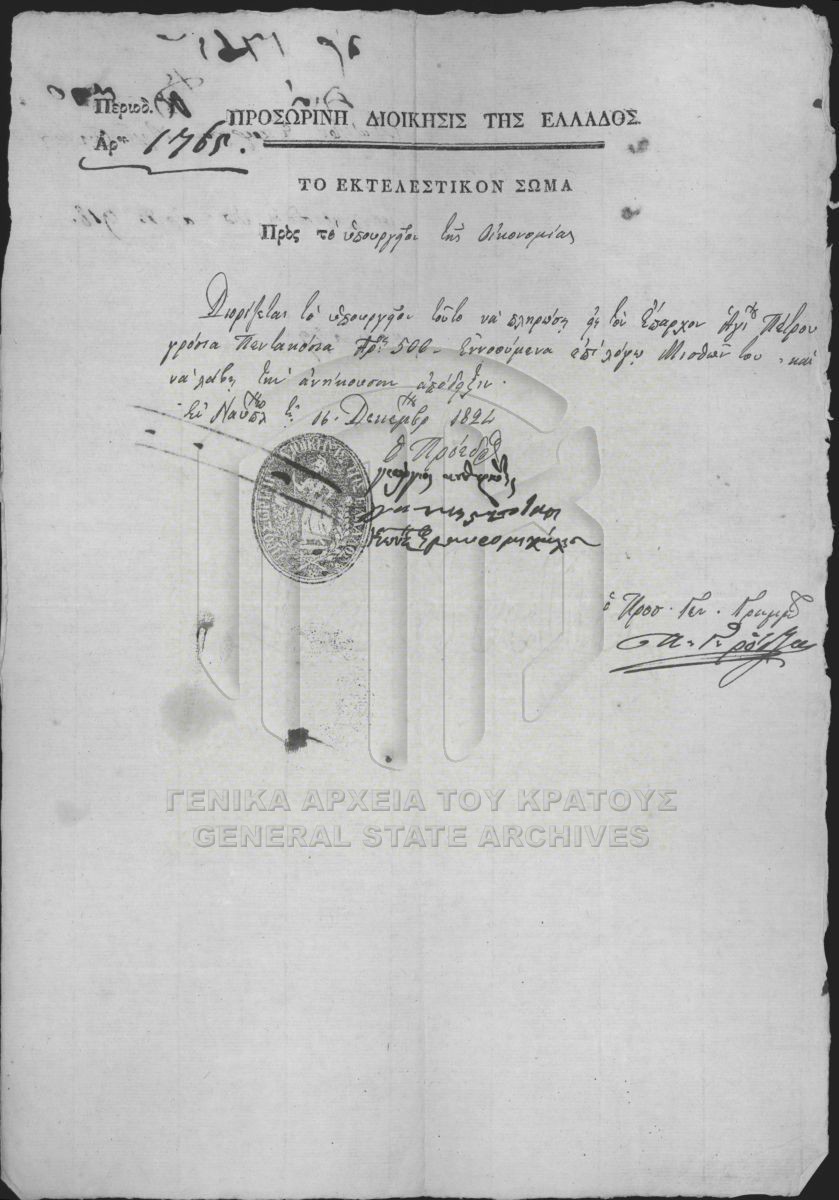 Περιοδ. Α
ΠΡΟΣΩΡΙΝΗ ΔΙΟΙΚΗΣΙΣ ΤΗΣ ΕΛΛΑΔΟΣ.
Ἀρ. 1765.
ΤΟ ΕΚΤΕΛΕΣΤΙΚΟΝ ΣΩΜΑ
Πρὸς τὸ ὑπουργεῖον τῆς Οἰκονομίας
Διορίζεται τὸ ὑπουργεῖον τοῦτο νὰ πληρώση εἰς τὸν ἔπαρχον Ἁγίου Πέτρου
γρόσια Πεντακόσια 500 ἐννοούμενα ἐπὶ λόγῳ Μισθῶν του καὶ
νὰ λάβῃ τὴν ἀνήκουσαν ἀπόδειξιν.
Ἐν Ναυπλ τῇ 16. Δεκεμβρ 1824
Ὁ Πρόεδρ
ὁ Προσ. Γεν. Γραμμ
ΓΕΝΙΚΑ ΑΡΧΕΙΑ ΤΟΥ ΚΡΑΤΟΥΣ
GENERAL STATE ARCHIVES